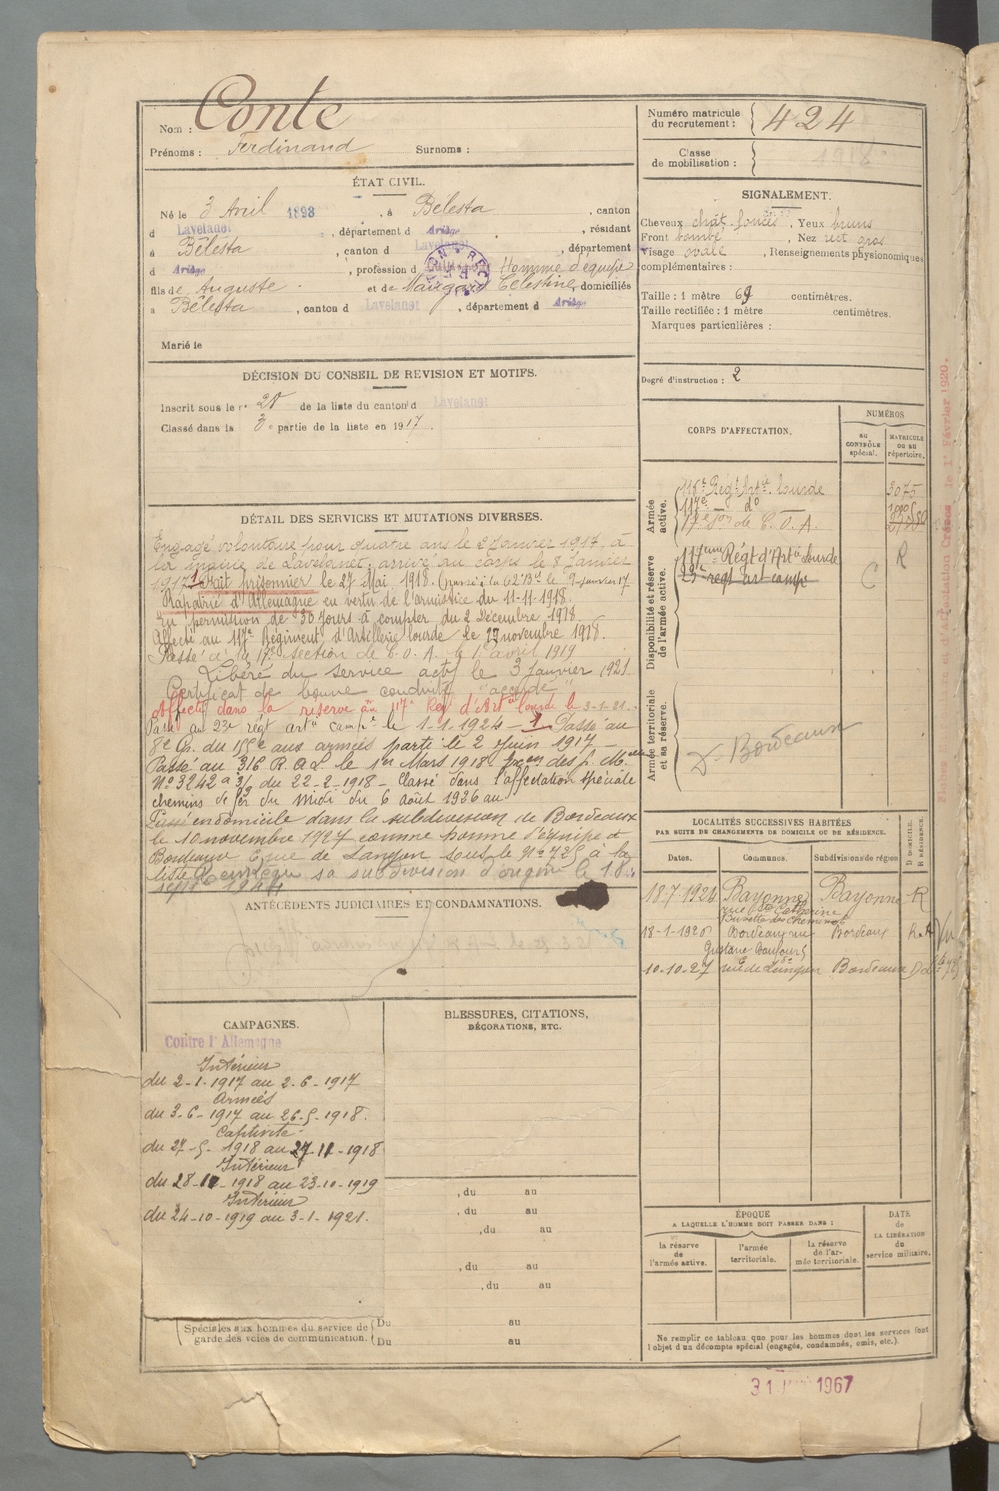 Nom : Conte
Prénoms : Ferdinand Surnoms :
Numéro matricule du recrutement : 424
Classe de mobilisation : 1918
ÉTAT CIVIL.
Né le 3 Avril 1898, à Bélesta, canton
d Lavelanet, département d Ariège, résidant
à Bélesta, canton d Lavelanet, département
d Ariège, profession d Homme d'équipe
fils de Auguste et de Maugard Célestine, domiciliés
à Bélesta, canton d Lavelanet, département d Ariège
Marié le
SIGNALEMENT.
Cheveux chât. foncés, Yeux bruns
Front bombé, Nez rect gros
Visage ovale, Renseignements physionomiques
complémentaires :
Taille : 1 mètre 69 centimètres.
Taille rectifiée : 1 mètre centimètres.
Marques particulières :
Degré d'instruction : 2
DÉCISION DU CONSEIL DE REVISION ET MOTIFS.
Inscrit sous le n° 28 de la liste du canton d Lavelanet
Classé dans la 3e partie de la liste en 1917.
DÉTAIL DES SERVICES ET MUTATIONS DIVERSES.
Engagé volontaire pour quatre ans le 2 Janvier 1917, à
la mairie de Lavelanet; arrivé au corps le 8 Janvier
1917. 1 Fait prisonnier le 27 Mai 1918. (passé à la 62e Bie le 9 Janvier 17
Rapatrié d'Allemagne en vertu de l'armistice du 11-11-1918.
En permission de 30 Jours à compter du 2 Décembre 1918.
Affecté au 117e Régiment d'Artillerie lourde le 29 novembre 1918.
Passé à la 17e section de C.O.A. le 1er avril 1919
Libéré du service actif le 3 Janvier 1921
Certificat de bonne conduite "accordé"
Affecté dans la réserve au 117e Rég d'Artie lourde le 3-1-21.
Passé au 23e régt artie campe le 1-1-1924 - 1 Passé au
155e aux armées parti le 2 Juin 1917 -
Passé au 316 R.A.L le 1er Mars 1918
No 3242 a 3/ du 22-2-1918 - Classé dans l'affectation spéciale
chemins de fer du Midi du 6 août 1926 au
Passé en domicile dans la subdivision de Bordeaux
le 10 novembre 1927 comme homme d'équipe à
Bordeaux rue de Langon sous le No 725 à la
liste sa subdivision d'origine le 18
sept
CORPS D'AFFECTATION.
NUMÉROS
AU CONTRÔLE spécial.
MATRICULE OU AU répertoire.
Armée active.
116e Régt Artie lourde 3075
117e do
17e Son de C.O.A.
Disponibilité et réserve de l'armée active.
117ème Régt d'Artie Lourde R
23e régt art camp C
Armée territoriale et sa réserve.
D. Bordeaux
LOCALITÉS SUCCESSIVES HABITÉES
PAR SUITE DE CHANGEMENTS DE DOMICILE OU DE RÉSIDENCE.
Dates. Communes. Subdivisions de région D DOMICILE. R RÉSIDENCE.
18-7-1924 Bayonne Bayonne R
rue Ste Catherine
Buvette des Cheminots
18-1-1926 Bordeaux rue Bordeaux R
Gustave
10-10-27 rue de Langon Bordeaux
ANTÉCÉDENTS JUDICIAIRES ET CONDAMNATIONS.
CAMPAGNES.
Contre l'Allemagne
Intérieur
du 2-1-1917 au 2-6-1917
Armées
du 3-6-1917 au 26-5-1918.
Captivité
du 27-5-1918 au 27-11-1918
Intérieur
du 28-11-1918 au 23-10-1919
Intérieur
du 24-10-1919 au 3-1-1921.
BLESSURES, CITATIONS,
DÉCORATIONS, ETC.
, du au
, du au
, du au
, du au
, du au
Spéciales aux hommes du service de garde des voies de communication. Du au
Du au
ÉPOQUE
A LAQUELLE L'HOMME DOIT PASSER DANS :
la réserve de l'armée active.
l'armée territoriale.
la réserve de l'armée territoriale.
DATE de LA LIBÉRATION du service militaire.
Ne remplir ce tableau que pour les hommes dont les services font
l'objet d'un décompte spécial (engagés, condamnés, omis, etc.).
1967